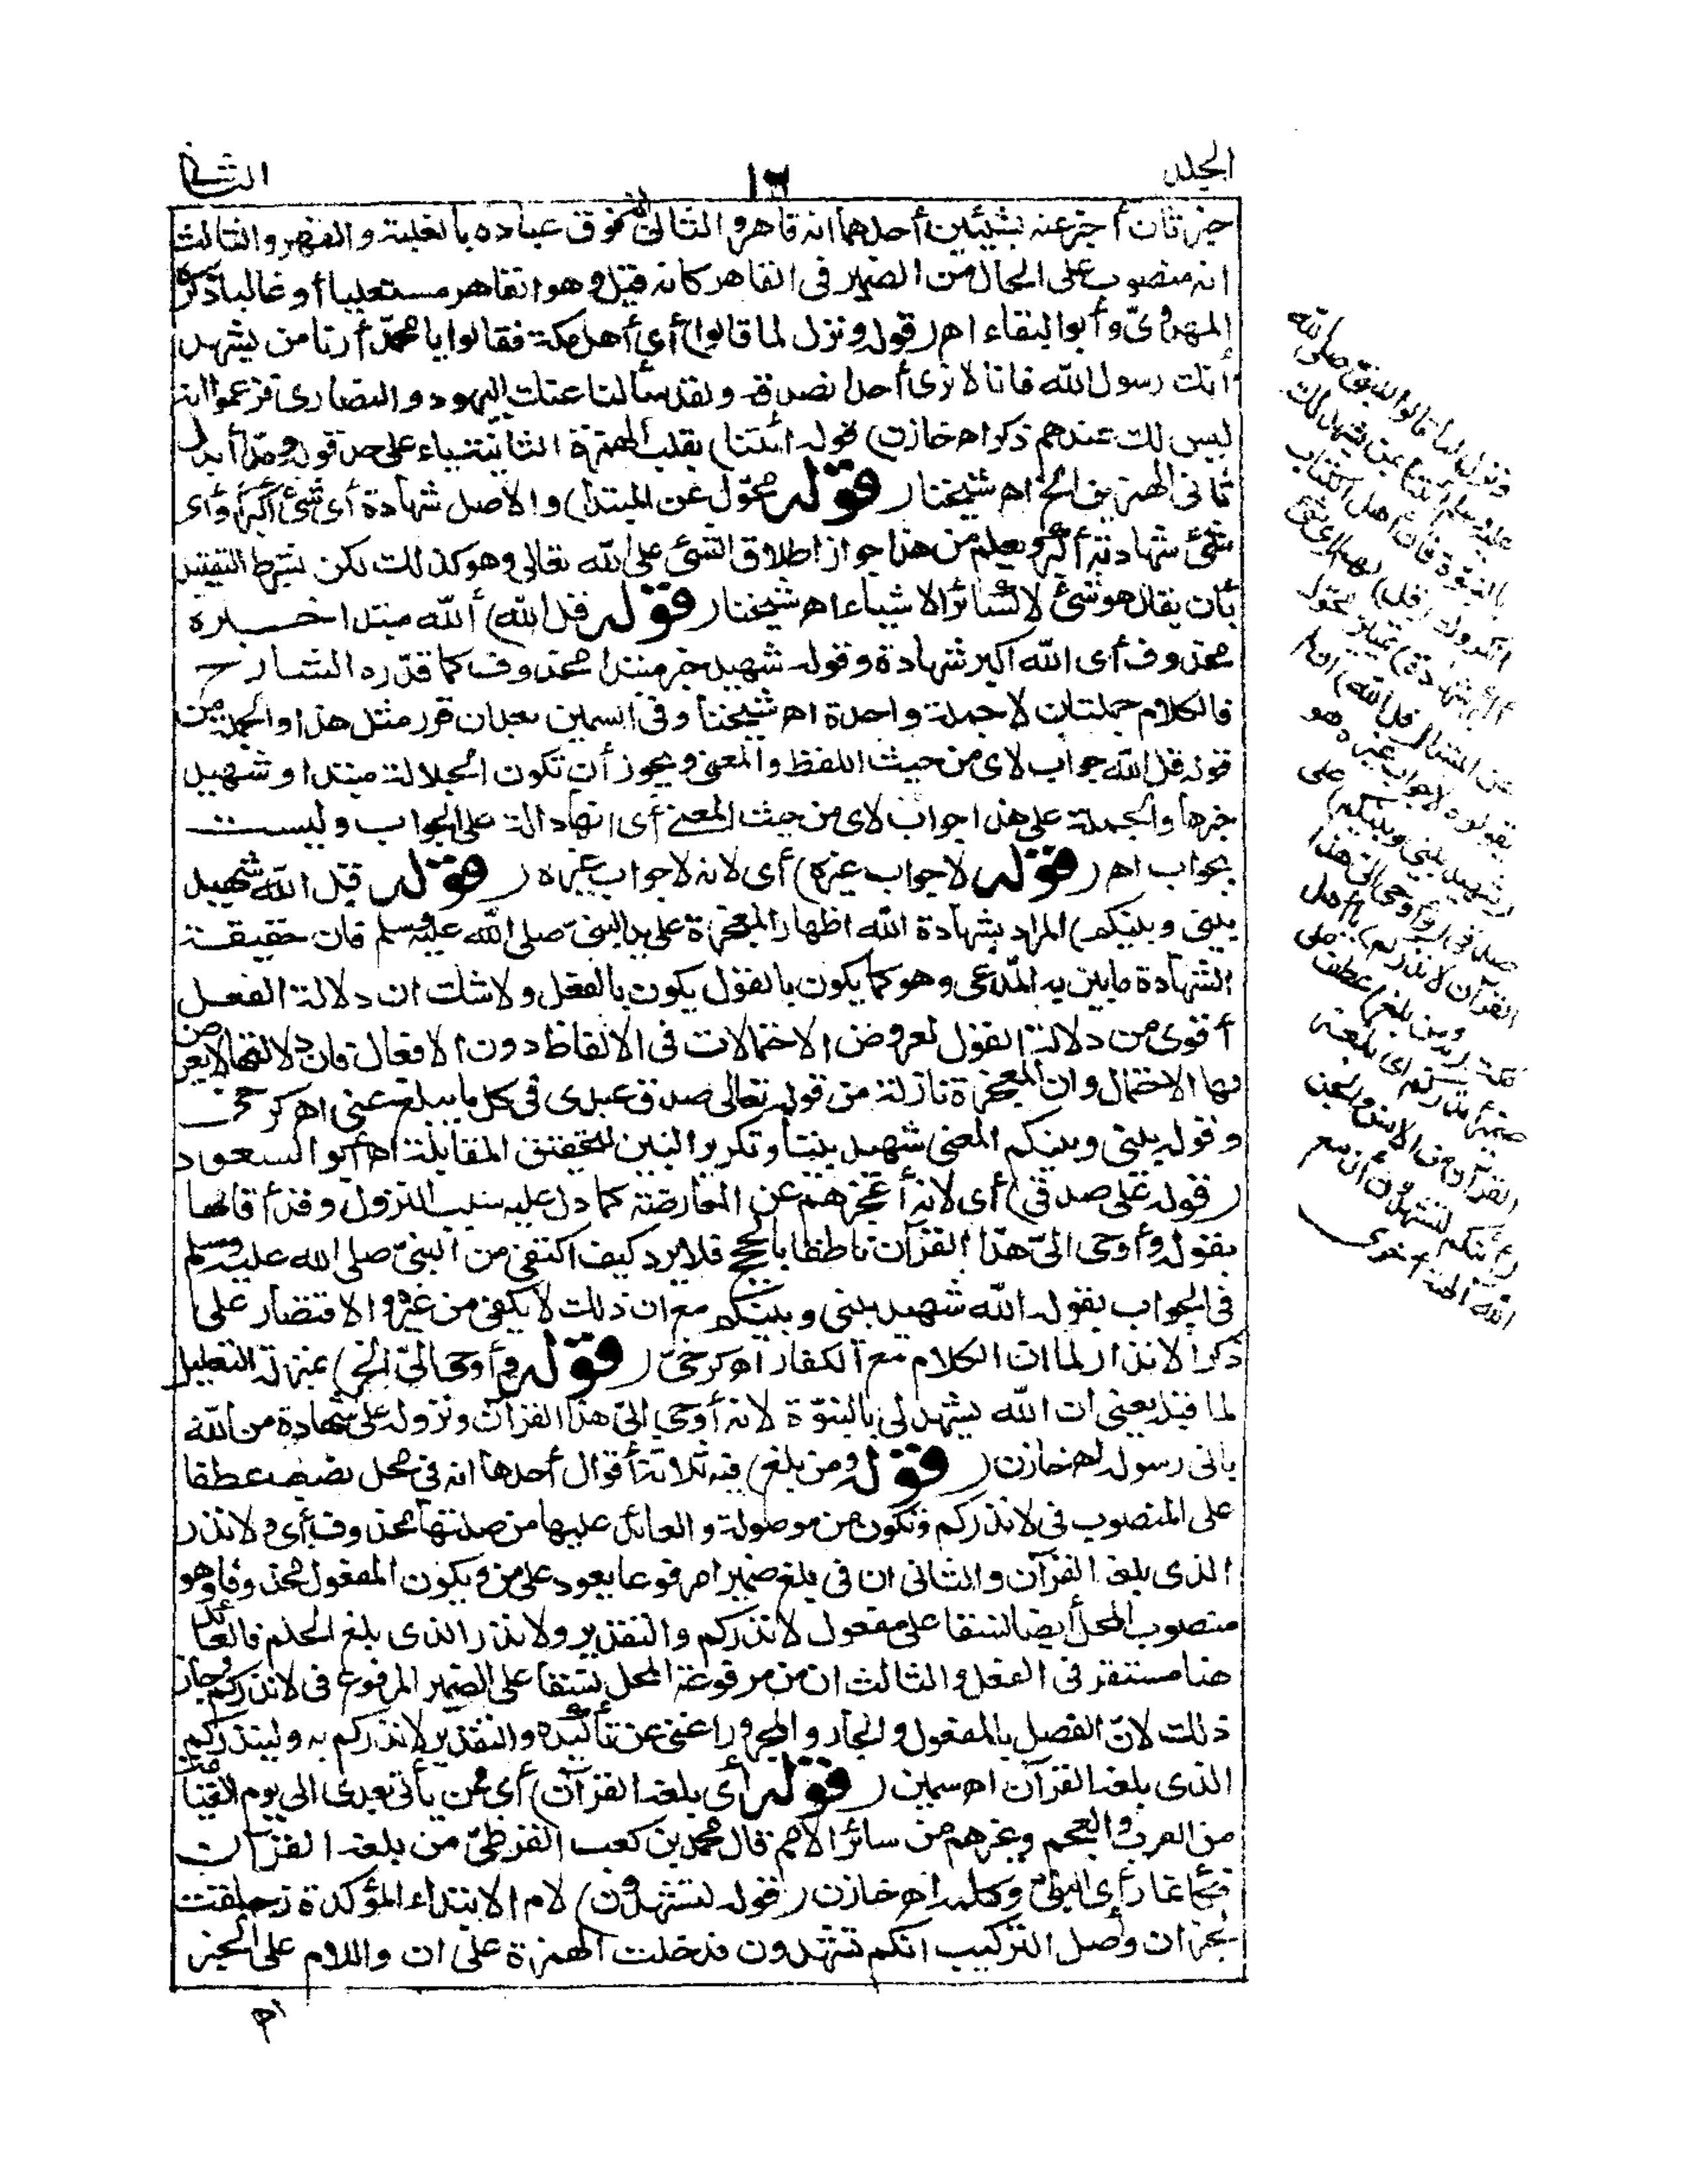 الجلد
١٦
الثانى
خبر ثان أخبر عنه بشيئين أحدهما انه قاهر والثانى انه فوق عباده بالغلبة والقهر والثالث
انه منصوب على الحال من الضمير فى القاهر كانه قيل وهو القاهر مستعليا أو غالبا ذكره
المهدوىّ وأبو البقاء اهـ (قوله ونزل لما قالوا) أى أهل مكة فقالوا يا محمّد أرنا من يشهد
انك رسول الله فانا لا نرى أحدا نصدقه ولقد سألنا عنك اليهود والنصارى فزعموا انه
ليس لك عندهم ذكر اهـ خازن (قوله ائتنا) بقلب الهمزة الثانية ياء على حد قوله ومدّا أبدل
ثانى الهمزين الخ اهـ شيخنا (قوله محوّل عن المبتدا) والاصل شهادة أى شئ أكبر أو أى
شئ شهادته أكبر ويعلم من هذا جواز اطلاق الشئ على الله تعالى وهو كذلك لكن بشرط التقييد
بأن يقال هو شئ لا كسائر الاشياء اهـ شيخنا (قوله قل الله) ألله مبتدا خبره
محذوف أى الله أكبر شهادة وقوله شهيد خبر مبتدا محذوف كما قدّره الشارح
فالكلام جملتان لا جملة واحدة اهـ شيخنا وفى السمين بعد ان قرر مثل هذا والجملة من
قوله قل الله جواب لاى من حيث اللفظ والمعنى ويجوز أن تكون الجلالة مبتدا وشهيد
خبرها والجملة على هذا جواب لاى من حيث المعنى أى انها دالة على الجواب وليست
بجواب اهـ (قوله لا جواب غيره) أى لانه لا جواب غيره (قوله قل الله شهيد
بينى وبينكم) المراد بشهادة الله اظهار المعجزة على يد النبىّ صلى الله عليه وسلم فان حقيقة
الشهادة ما بين به المدّعى وهو كما يكون بالقول يكون بالفعل ولا شك ان دلالة الفعل
أقوى من دلالة القول لعروض الاحتمالات فى الالفاظ دون الافعال فان دلالتها لا يعرض
لها الاحتمال وان المعجزة نازلة من قوله تعالى صدق عبدى فى كل ما يبلغ عنى اهـ كرخى
وقوله بينى وبينكم المعنى شهيد بيننا وتكرير البين لتحقيق المقابلة اهـ أبو السعود
(قوله على صدقى) أى لانه أعجزهم عن المعارضة كما دل عليه سبب النزول وقد أقامها
بقوله وأوحى الىّ هذا القرآن ناطقا بالحجج فلا يرد كيف اكتفى من النبىّ صلى الله عليه وسلم
فى الجواب بقوله الله شهيد بينى وبينكم مع ان ذلك لا يكفى من غيره والاقتصار على
ذكر الانذار لما ان الكلام مع الكفار اهـ كرخىّ (قوله وأوحى الىّ الخ) بمنزلة التعليل
لما قبله يعنى ان الله يشهد لى بالنبوّة لانه أوحى الىّ هذا القرآن ونزوله علىّ شهادة من الله
بانى رسوله اهـ خازن (قوله ومن بلغ) فيه ثلاثة أقوال أحدها انه فى محل نصب عطفا
على المنصوب فى لانذركم وتكون من موصولة والعائد عليها من صلتها محذوف أى ولانذر
الذى بلغه القرآن والثانى ان فى بلغ ضميرا مرفوعا يعود على من ويكون المفعول محذوفا وهو
منصوب المحل أيضا نسقا على مفعول لانذركم والتقدير ولانذر الذى بلغ الحلم فالعائد
هنا مستتر فى الفعل والثالث ان من مرفوعة المحل نسقا على الضمير المرفوع فى لانذركم وجاز
ذلك لانّ الفصل بالمفعول والجار والمجرور اغنى عن تأكيده والتقدير لانذركم به ولينذركم
الذى بلغه القرآن اهـ سمين (قوله أى بلغه القرآن) أى ممن يأتى بعدى الى يوم القيامة
من العرب والعجم وغيرهم من سائر الامم قال محمد بن كعب القرظىّ من بلغه القرآن
فكأنما رأى النبىّ وكلمه اهـ خازن (قوله لتشهدون) لام الابتداء المؤكدة زحلقت
لخبر ان وأصل التركيب انكم تشهدون فدخلت الهمزة على ان واللام على الخبر
اهـ
ونزل لما قالوا للنبىّ صلى الله
عليه وسلم ائتنا بمن يشهد لك
بالنبوّة فان أهل الكتاب
انكروك (قل) لهم (أى شئ
أكبر شهادة) تمييز محوّل
عن المبتدا (قل الله) ان لم
يقولوه لا جواب غيره هو
(شهيد بينى وبينكم) على
صدقى (وأوحى الىّ هذا
القرآن لانذركم) يا أهل
مكة (به ومن بلغ) عطف على
ضمير أنذركم أى بلغه
القرآن من الانس والجن
(أئنكم لتشهدون أن مع
الله آلهة أخرى)